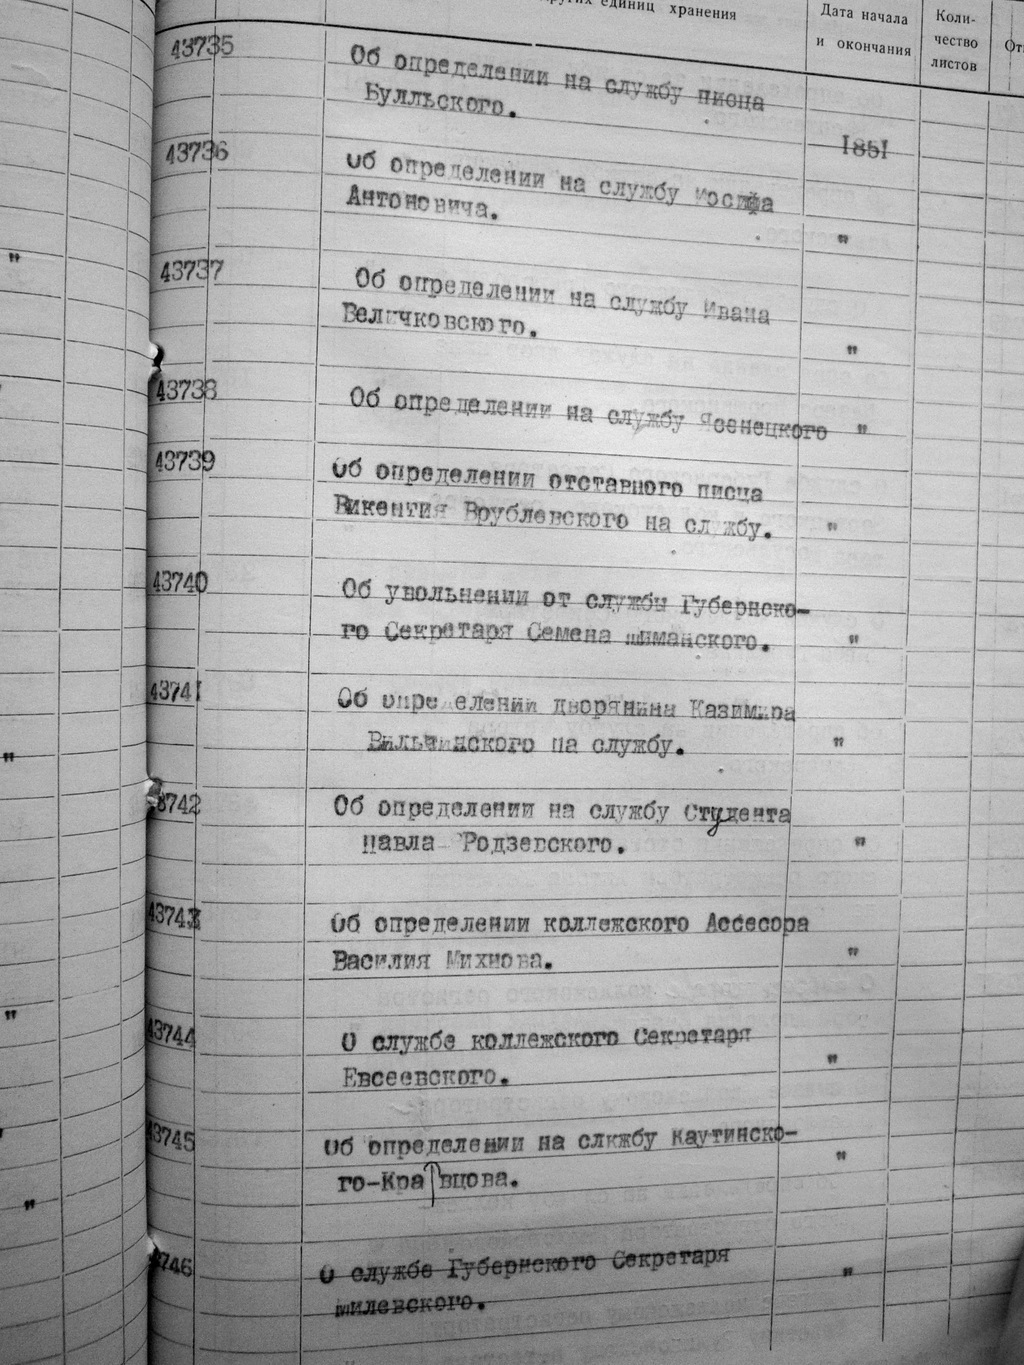 других единиц хранения
Дата начала
и окончания
Коли-
чество
листов
43735 Об определении на службу писца
Булльского. 1851
43736 Об определении на службу Иосифа
Антоновича. "
43737 Об определении на службу Ивана
Величковского. "
43738 Об определении на службу Ясенецкого "
43739 Об определении отставного писца
Викентия Врублевского на сл жбу. "
43740 Об увольнении от службы Губернско-
го Секретаря Семена Шиманского. "
43741 Об опре елении дворянина Казимира
Вильчинского на службу. "
43742 Об определении на службу Студента
Павла Родзевского. "
43743 Об определении коллежского Ассесора
Василия Михнова. "
43744 О службе коллежского Секретаря
Евсеевского. "
43745 Об определении на слкжбу Каутинско-
го-Кра вцова. "
43746 О службе Губернского Секретаря
Милевского. "